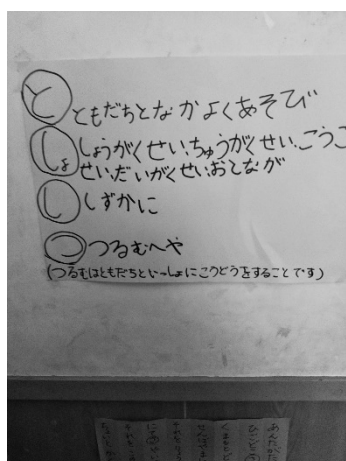 と ともだちとなかよくあそび
しょ しょうがくせい、ちゅうがくせい、こうこ
せい、だいがくせい、おとなが
し しずかに
つ つるむへや
(つるむはともだちといっしょにこうどうをすることです)